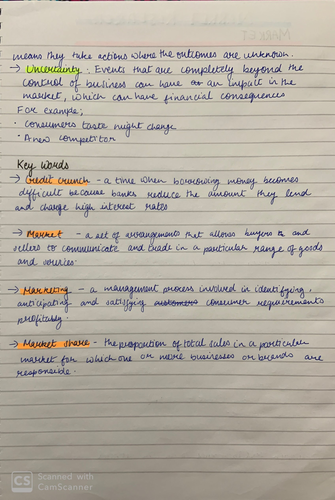 means they take actions where the outcomes are unknown.
→ Uncertainty : Events that are completely beyond the
control of business can have an impact in the
market, which can have financial consequences
For example;
· Consumers taste might change
· A new competitor
Key words
→ Credit crunch - a time when borrowing money becomes
difficult because banks reduce the amount they lend
and charge high interest rates
→ Market - a set of arrangements that allows buyers and
sellers to communicate and trade in a particular range of goods
and services.
→ Marketing - a management process involved in identifying,
anticipating and satisfying customers consumer requirements
profitably.
→ Market share - the proportion of total sales in a particular
market for which one or more businesses or brands are
responsible.
CS Scanned with
CamScanner